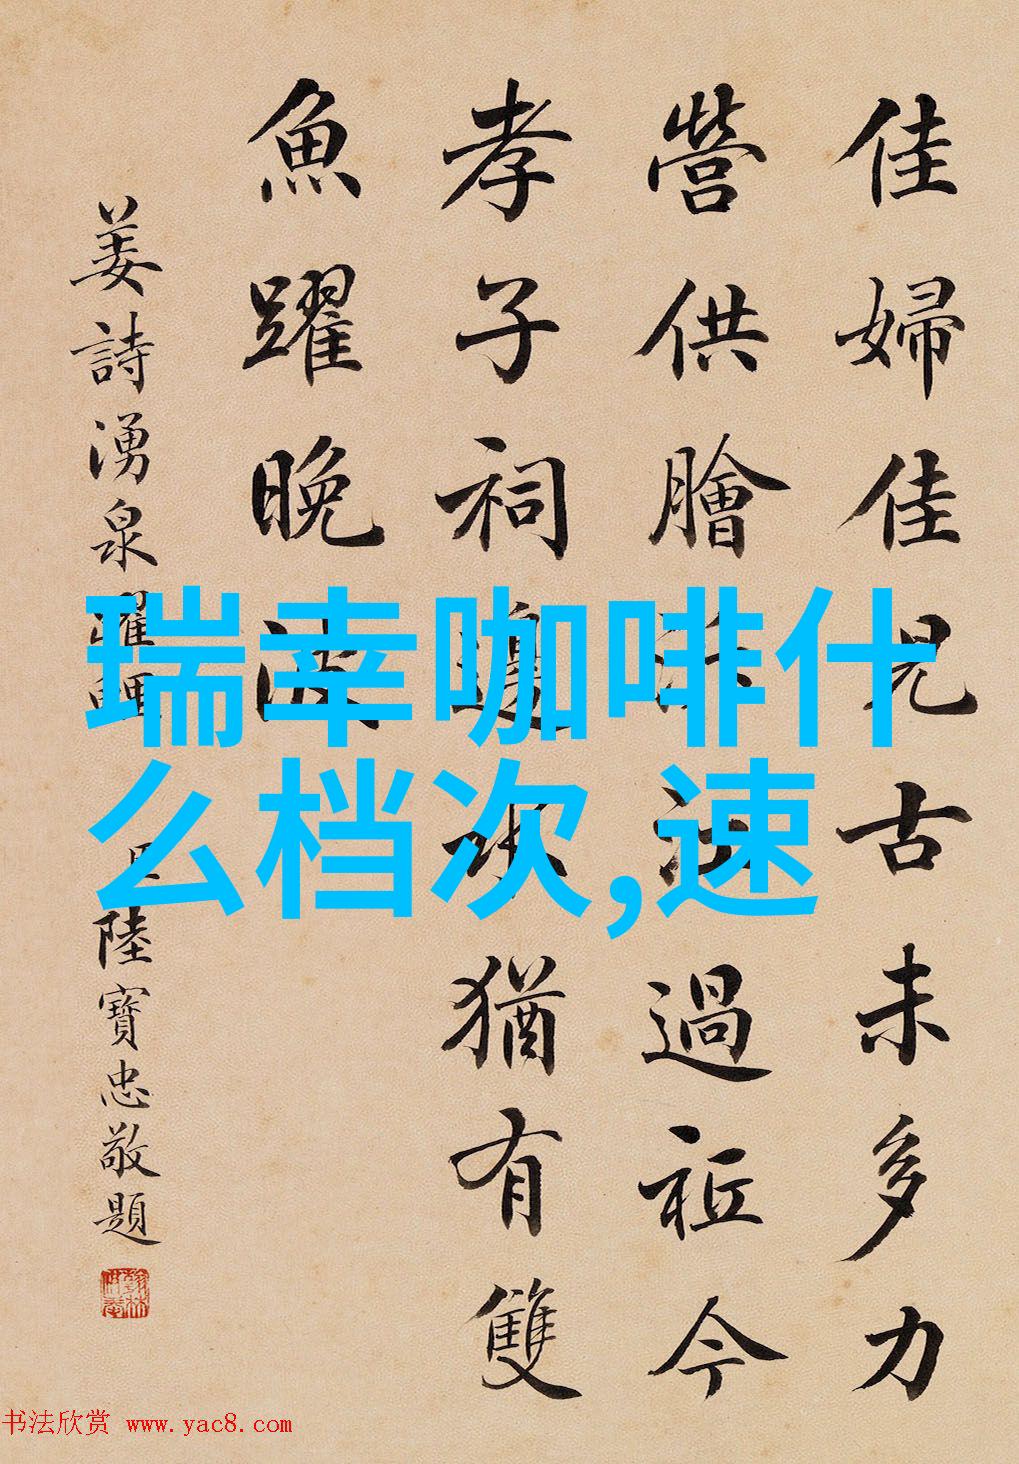 佳婦佳兒古未多力
營供膾江過祗今
孝子祠邊水猶有雙
魚躍晚波
姜詩湧泉躍鯉
臣陸寶忠敬題
瑞幸咖啡什
么档次,速
书法欣赏 www.yac8.com